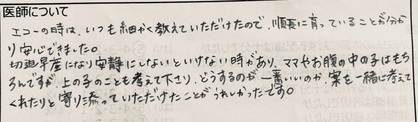 医師について
エコーの時は、いつも細かく教えていただけたので、順長に育っていることが分か
り安心できました。
切迫早産になり安静にしないといけない時があり、ママやお腹の中の子はもち
ろんですが上の子のことも考えて下さり、どうするのが一番いいのか、案を一緒に考えて
くれたりと寄り添っていただけたことがうれしかったです。